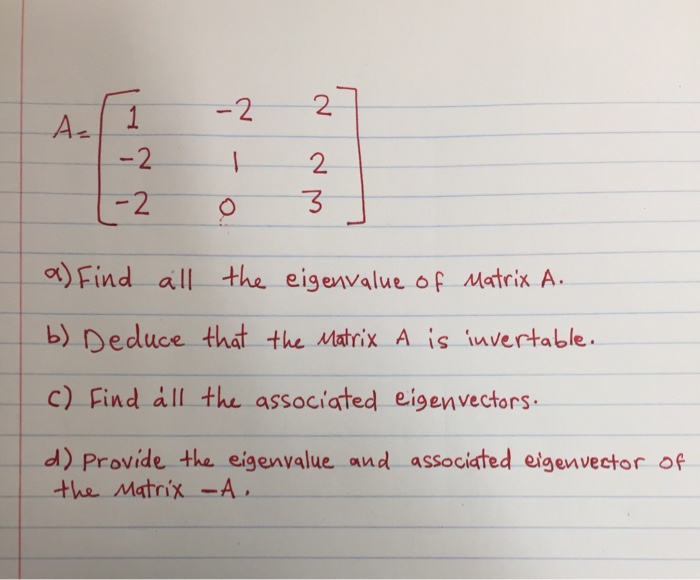 A= [ 1 -2 2
-2 1 2
-2 0 3 ]
a) Find all the eigenvalue of Matrix A.
b) Deduce that the Matrix A is invertable.
c) Find all the associated eigenvectors.
d) Provide the eigenvalue and associated eigenvector of
the Matrix -A.